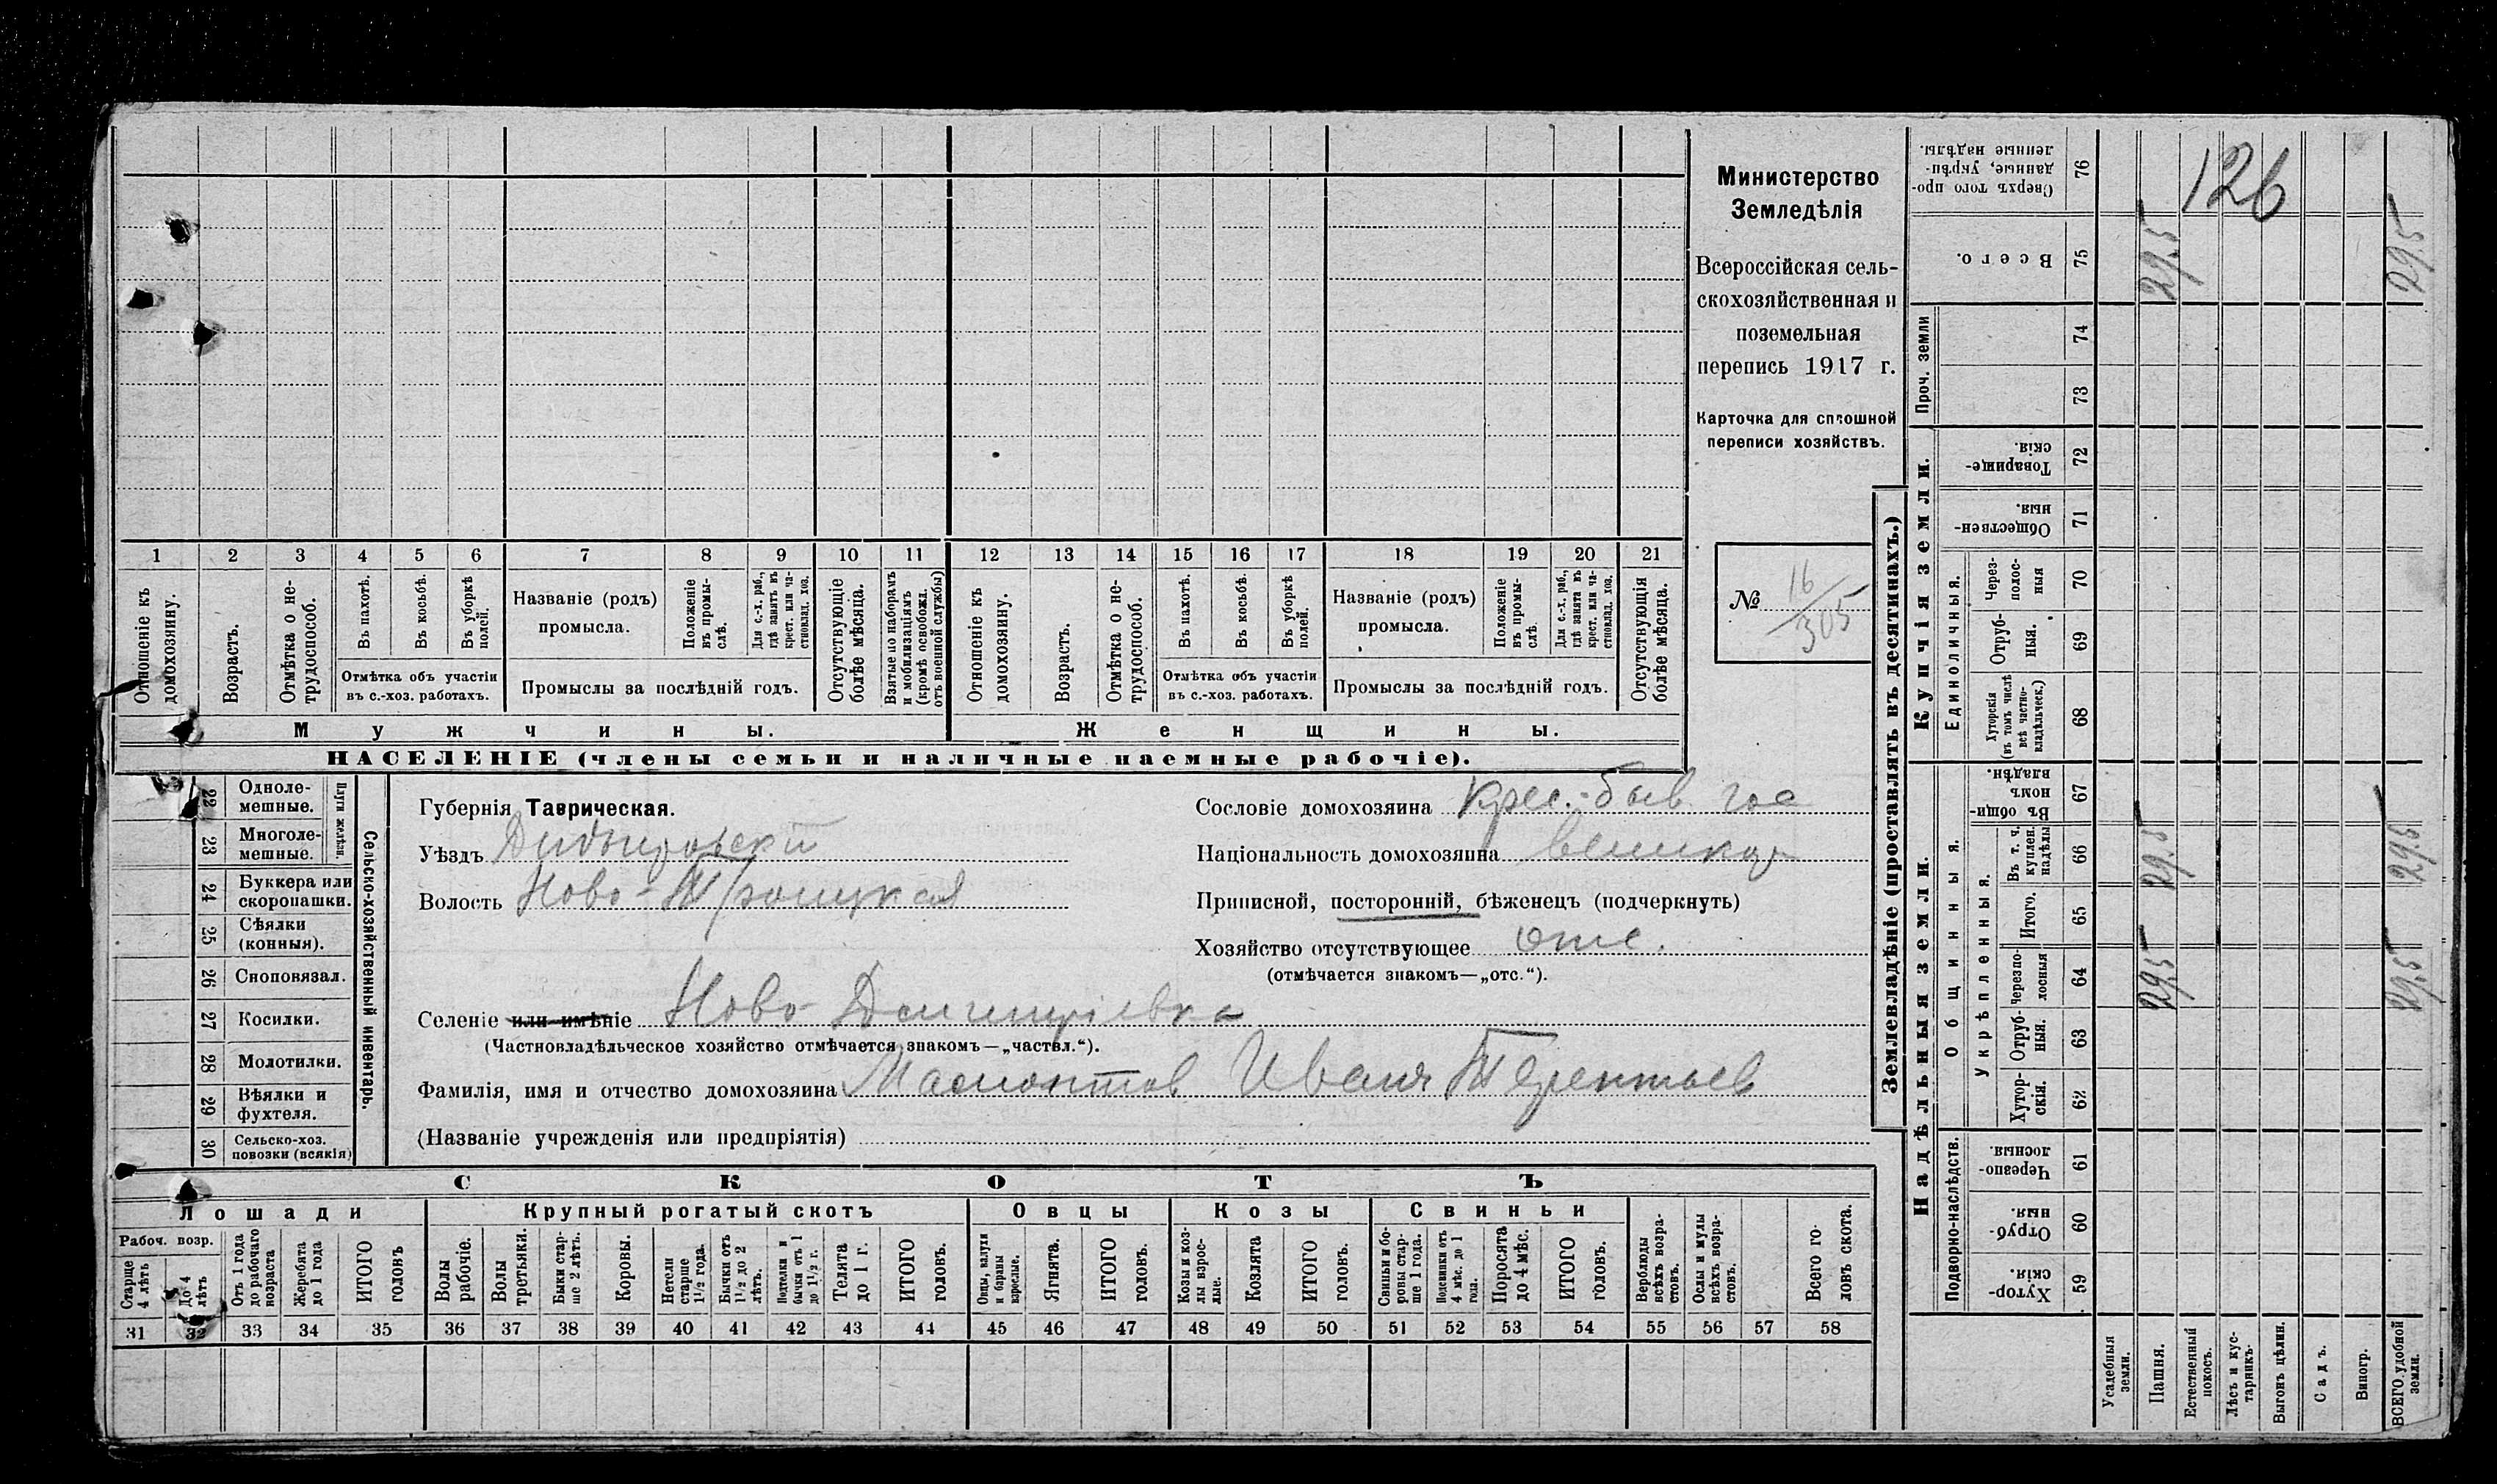 126
Министерство
Земледѣлія
Всероссійская сель-
скохозяйственная и
поземельная
перепись 1917 г.
Карточка для сплошной
переписи хозяйствъ.
№ 16/305
1 2 3 4 5 6 7 8 9 10 11 12 13 14 15 16 17 18 19 20 21
Отношеніе къ домохозяину.
Возрастъ.
Отмѣтка о не-трудоспособ.
Въ пахотѣ.
Въ косьбѣ.
Въ уборкѣ полей.
Отмѣтка объ участіи
въ с.-хоз. работахъ.
Названіе (родъ)
промысла.
Положеніе въ промы-слѣ.
Для с.-х. раб., гдѣ занятъ въ крест. или ча-стновлад. хоз.
Промыслы за послѣдній годъ.
Отсутствующіе болѣе мѣсяца.
Взятые по наборамъ и мобилизаціямъ (кромѣ освобожд. отъ военной службы)
Отношеніе къ домохозяину.
Возрастъ.
Отмѣтка о не-трудоспособ.
Въ пахотѣ.
Въ косьбѣ.
Въ уборкѣ полей.
Отмѣтка объ участіи
въ с.-хоз. работахъ.
Названіе (родъ)
промысла.
Положеніе въ промы-слѣ.
Для с.-х. раб., гдѣ занята въ крест. или ча-стновлад. хоз.
Промыслы за послѣдній годъ.
Отсутствующія болѣе мѣсяца.
Мужчины.
Женщины.
НАСЕЛЕНІЕ (члены семьи и наличные наемные рабочіе).
22 Одноле-мешные.
23 Многоле-мешные.
Плуги желѣзн.
24 Буккера или скоропашки.
25 Сѣялки (конныя).
26 Сноповязал.
27 Косилки.
28 Молотилки.
29 Вѣялки и фухтеля.
30 Сельско-хоз. повозки (всякія)
Сельско-хозяйственный инвентарь.
Губернія Таврическая.
Уѣздъ Днѣпровскій
Волость Ново-Троицкая
Сословіе домохозяина Крес. быв. гос
Національность домохозяина великор
Приписной, посторонній, бѣженецъ (подчеркнуть)
Хозяйство отсутствующее отс.
(отмѣчается знакомъ—„отс.“).
Селеніе или имѣніе Ново-Дмитріевка
(Частновладѣльческое хозяйство отмѣчается знакомъ—„частвл.“).
Фамилія, имя и отчество домохозяина Мамонтов Иванъ Терентьев
(Названіе учрежденія или предпріятія)
СКОТЪ
Лошади
Крупный рогатый скотъ
Овцы
Козы
Свиньи
Рабоч. возр.
Старше 4 лѣтъ
До 4 лѣтъ
Отъ 1 года до рабочаго возраста
Жеребята до 1 года
ИТОГО головъ
Волы рабочіе.
Волы третьяки.
Быки стар-ше 2 лѣтъ.
Коровы.
Нетели старше 1½ года.
Бычки отъ 1½ до 2 лѣтъ.
Подтелки и бычки отъ 1 до 1½ г.
Телята до 1 г.
ИТОГО головъ.
Овцы, валухи и бараны взрослые.
Ягнята.
ИТОГО головъ.
Козы и коз-лы взрос-лые.
Козлята
ИТОГО головъ.
Свиньи и бо-ровы стар-ше 1 года.
Подсвинки отъ 4 мѣс. до 1 года.
Поросята до 4 мѣс.
ИТОГО головъ.
Верблюды всѣхъ возра-стовъ.
Ослы и мулы всѣхъ возра-стовъ.
Всего го-ловъ скота.
31 32 33 34 35 36 37 38 39 40 41 42 43 44 45 46 47 48 49 50 51 52 53 54 55 56 57 58
Землевладѣніе (проставлять въ десятинахъ.)
Надѣльныя земли.
Купчія земли.
Проч. земли
Подворно-наслѣдств.
Общинныя.
Укрѣпленныя.
Единоличныя.
Хутор-скія. 59
Отруб-ныя. 60
Черезпо-лосныя. 61
Хутор-скія. 62
Отруб-ныя. 63
Черезпо-лосныя 64
Итого. 65
Въ т. ч. куплен. надѣлы 66
Въ общин-номъ владѣн. 67
Хуторскія (въ томъ числѣ всѣ частно-владѣльческ.) 68
Отруб-ныя. 69
Через-полос-ныя 70
Обществен-ныя. 71
Товарище-скія. 72
73
74
Всего. 75
Сверхъ того про-данные, укрѣп-ленные надѣлы. 76
Усадебныя земли.
Пашня. 29,5 29,5 29,5
Естественный покосъ.
Лѣсъ и кус-тарникъ.
Выгонъ цѣлин.
Садъ.
Виногр.
ВСЕГО удобной земли. 29,5 29,5 29,5